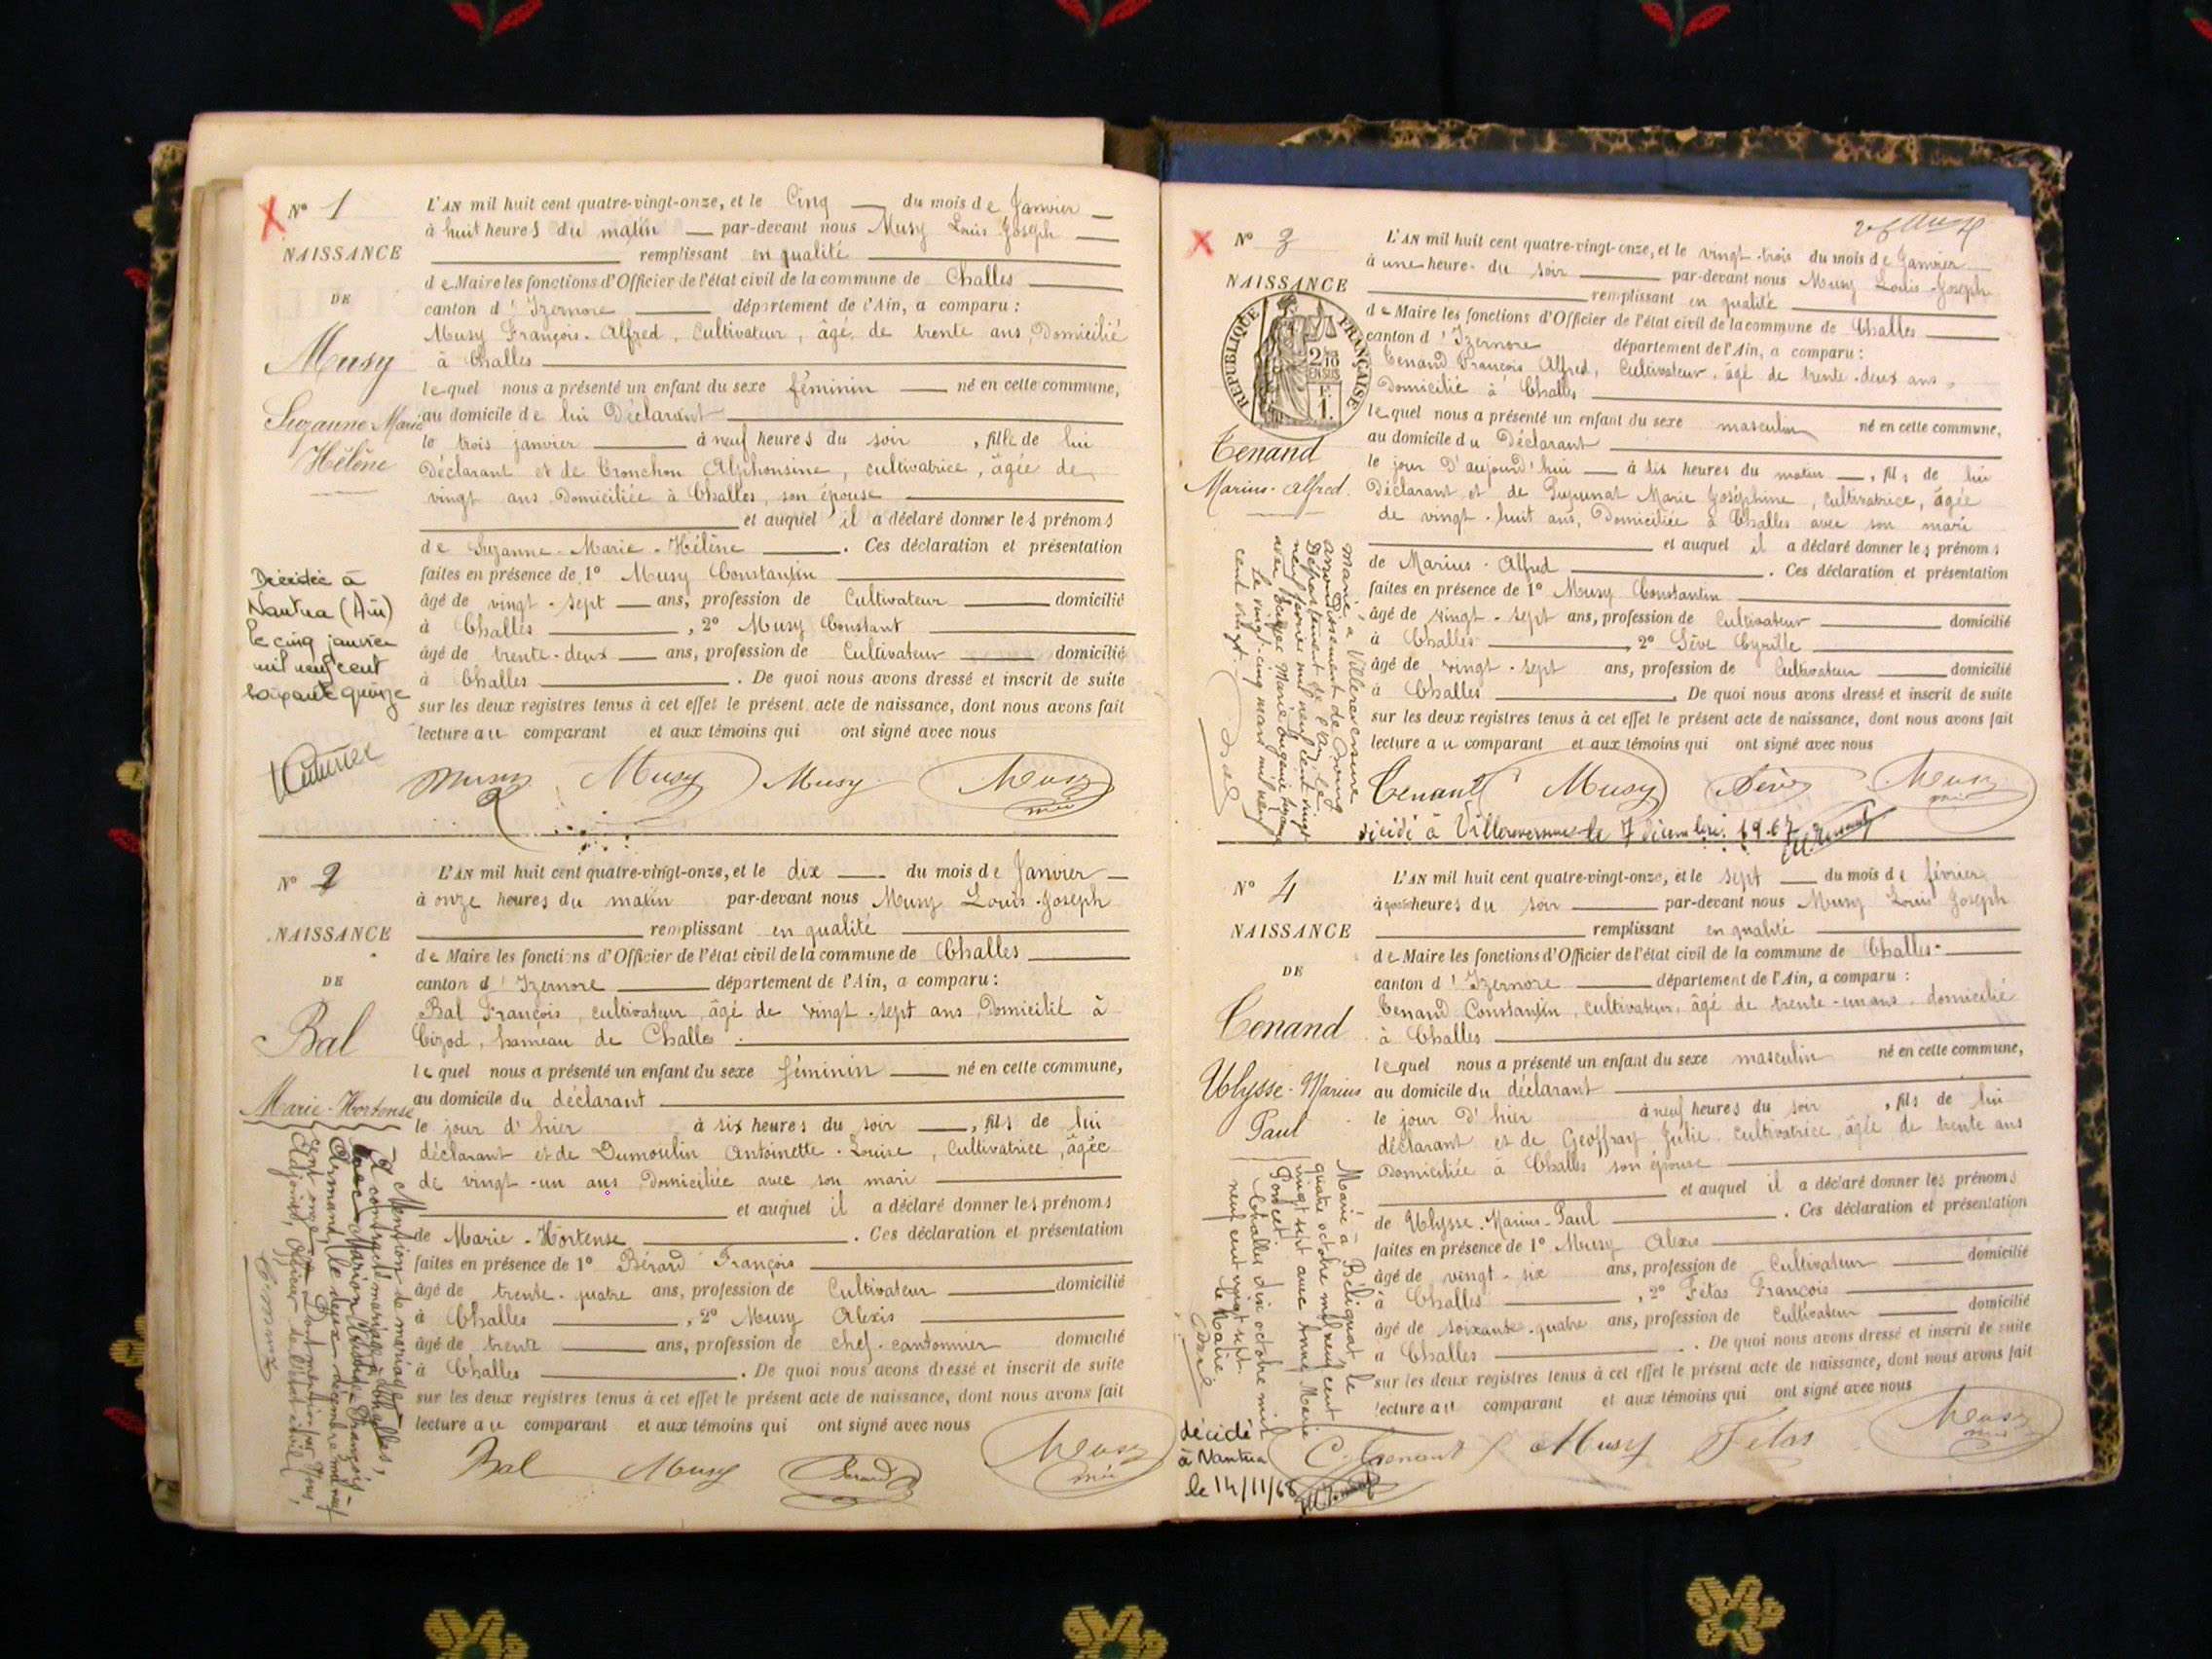 N° 1
NAISSANCE
DE
Musy
Suzanne Marie
Hélène
Décédée à
Nantua (Ain)
le cinq janvier
mil neuf cent
soixante quinze
L'AN mil huit cent quatre-vingt-onze, et le Cinq du mois de Janvier
à huit heures du matin par-devant nous Musy Louis Joseph
remplissant en qualité
de Maire les fonctions d'Officier de l'état civil de la commune de Challes
canton d'Izernore département de l'Ain, a comparu :
Musy François-Alfred, Cultivateur, âgé de trente ans, Domicilié
à Challes
lequel nous a présenté un enfant du sexe féminin né en cette commune,
au domicile de lui Déclarant
le trois janvier à neuf heures du soir, fille de lui
Déclarant et de Tronchon Alphonsine, cultivatrice, âgée de
vingt ans Domiciliée à Challes, son épouse
et auquel il a déclaré donner les prénoms
de Suzanne-Marie-Hélène. Ces déclaration et présentation
faites en présence de 1° Musy Constantin
âgé de vingt-sept ans, profession de Cultivateur domicilié
à Challes, 2° Musy Constant
âgé de trente-deux ans, profession de Cultivateur domicilié
à Challes. De quoi nous avons dressé et inscrit de suite
sur les deux registres tenus à cet effet le présent acte de naissance, dont nous avons fait
lecture au comparant et aux témoins qui ont signé avec nous
Musy Musy Musy Musy
N° 2
NAISSANCE
DE
Bal
Marie-Hortense
Mention de mariage
A contracté mariage à Challes,
avec Marion Claude François
Armand, le deux décembre mil neuf
cent onze. Dont mention par Nous,
Adjoint, Officier de l'état civil
L'AN mil huit cent quatre-vingt-onze, et le dix du mois de Janvier
à onze heures du matin par-devant nous Musy Louis-Joseph
remplissant en qualité
de Maire les fonctions d'Officier de l'état civil de la commune de Challes
canton d'Izernore département de l'Ain, a comparu :
Bal François, cultivateur, âgé de vingt-sept ans Domicilié à
Cizod, hameau de Challes
lequel nous a présenté un enfant du sexe féminin né en cette commune,
au domicile du déclarant
le jour d'hier à six heures du soir, fils de lui
déclarant et de Dumoulin Antoinette-Louise, Cultivatrice, âgée
de vingt-un ans Domiciliée avec son mari
et auquel il a déclaré donner les prénoms
de Marie-Hortense. Ces déclaration et présentation
faites en présence de 1° Bérard François
âgé de trente-quatre ans, profession de Cultivateur domicilié
à Challes, 2° Musy Alexis
âgé de trente ans, profession de chef-cantonnier domicilié
à Challes. De quoi nous avons dressé et inscrit de suite
sur les deux registres tenus à cet effet le présent acte de naissance, dont nous avons fait
lecture au comparant et aux témoins qui ont signé avec nous
Bal Musy Berard Musy
N° 3
NAISSANCE
REPUBLIQUE FRANÇAISE
2/10 EN SUS
F. 1.
Tenand
Marius-Alfred
Marié à Villereversure
arrondissement de Bourg
Département de l'Ain le
neuf février mil neuf cent vingt
avec Marie Eugénie
Le vingt-cinq mars mil neuf
cent vingt
L'AN mil huit cent quatre-vingt-onze, et le vingt-trois du mois de Janvier
à une heure du soir par-devant nous Musy Louis-Joseph
remplissant en qualité
de Maire les fonctions d'Officier de l'état civil de la commune de Challes
canton d'Izernore département de l'Ain, a comparu :
Tenand François Alfred, Cultivateur, âgé de trente-deux ans,
Domicilié à Challes
lequel nous a présenté un enfant du sexe masculin né en cette commune,
au domicile du Déclarant
le jour D'aujourd'hui à six heures du matin, fils de lui
Déclarant et de Marie Joséphine, Cultivatrice, âgée
de vingt-huit ans, Domiciliée à Challes avec son mari
et auquel il a déclaré donner les prénoms
de Marius-Alfred. Ces déclaration et présentation
faites en présence de 1° Musy Constantin
âgé de vingt-sept ans, profession de Cultivateur domicilié
à Challes, 2° Sève Cyrille
âgé de vingt-sept ans, profession de Cultivateur domicilié
à Challes. De quoi nous avons dressé et inscrit de suite
sur les deux registres tenus à cet effet le présent acte de naissance, dont nous avons fait
lecture au comparant et aux témoins qui ont signé avec nous
Tenand Musy Sève Musy
décédé à Villereversure le 7 décembre 1967
N° 4
NAISSANCE
DE
Tenand
Ulysse-Marius
Paul
Marié à Bélignat, le
quatre octobre mil neuf cent
vingt sept avec Anne, Marie
Poncet
Challes dix octobre mil
neuf cent vingt sept.
le Maire
décédé
à Nantua
le 14/11/68
L'AN mil huit cent quatre-vingt-onze, et le sept du mois de février
à quatre heures du soir par-devant nous Musy Louis Joseph
remplissant en qualité
de Maire les fonctions d'Officier de l'état civil de la commune de Challes
canton d'Izernore département de l'Ain, a comparu :
Tenand Constantin, cultivateur, âgé de trente-un ans, domicilié
à Challes
lequel nous a présenté un enfant du sexe masculin né en cette commune,
au domicile du déclarant
le jour D'hier à neuf heures du soir, fils de lui
déclarant et de Geoffray Julie, Cultivatrice, âgée de trente ans
Domiciliée à Challes son épouse
et auquel il a déclaré donner les prénoms
de Ulysse-Marius-Paul. Ces déclaration et présentation
faites en présence de 1° Musy Alexis
âgé de vingt-six ans, profession de Cultivateur domicilié
à Challes, 2° Fétas François
âgé de soixante-quatre ans, profession de Cultivateur domicilié
à Challes. De quoi nous avons dressé et inscrit de suite
sur les deux registres tenus à cet effet le présent acte de naissance, dont nous avons fait
lecture au comparant et aux témoins qui ont signé avec nous
C. Tenand Musy Fétas Musy